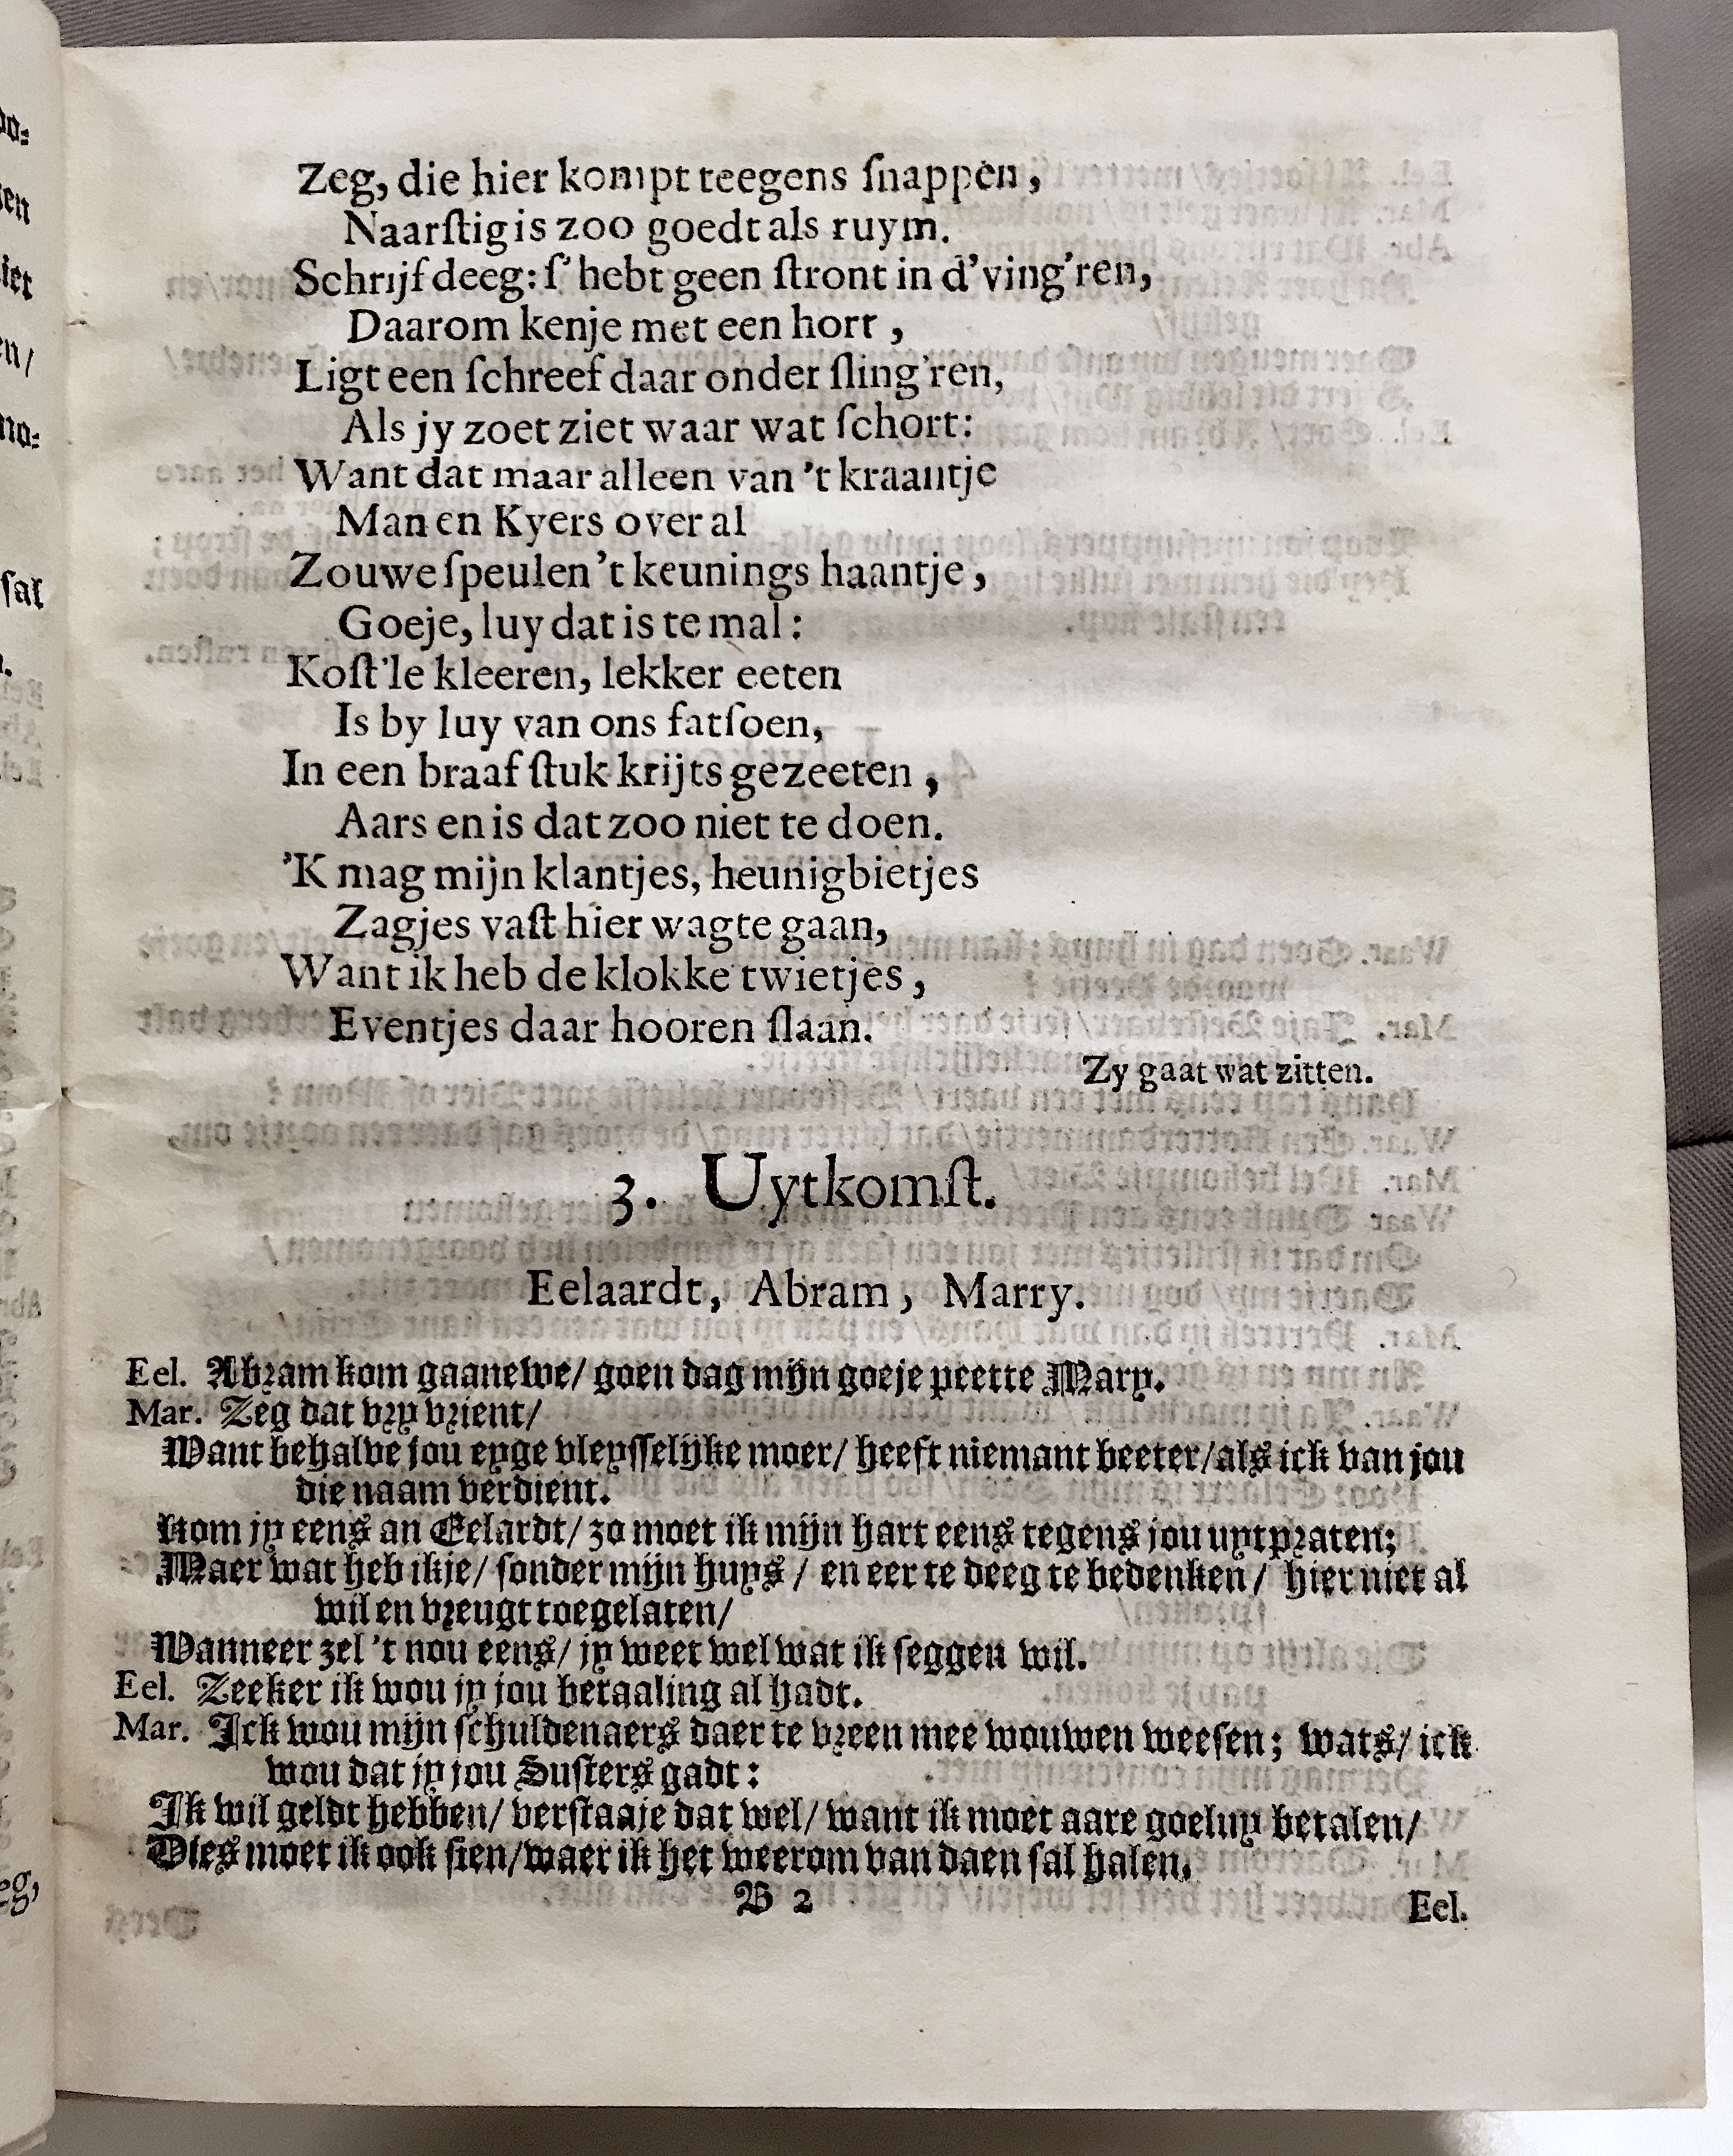 Zeg, die hier kompt teegens ſnappen,
Naarſtig is zoo goedt als ruym.
Schrijf deeg: ſ' hebt geen ſtront in d'ving'ren,
Daarom kenje met een hort,
Ligt een ſchreef daar onder ſling'ren,
Als jy zoet ziet waar wat ſchort:
Want dat maar alleen van 't kraantje
Man en Kyers over al
Zouwe ſpeulen 't keunings haantje,
Goeje, luy dat is te mal:
Koſt'le kleeren, lekker eeten
Is by luy van ons fatſoen,
In een braaf ſtuk krijts gezeeten,
Aars en is dat zoo niet te doen.
'K mag mijn klantjes, heunigbietjes
Zagjes vaſt hier wagte gaan,
Want ik heb de klokke twietjes,
Eventjes daar hooren ſlaan.
Zy gaat wat zitten.
3. Uytkomſt.
Eelaardt, Abram, Marry.
Eel. Abram kom gaanewe/ goen dag mijn goeje peette Mary.
Mar. Zeg dat vry vrient/
Want behalve jou eyge vleyſſelijke moer/ heeft niemant beeter/ als ick van jou
die naam verdient.
Kom jy eens an Eelardt/ zo moet ik mijn hart eens tegens jou uytpraten;
Maer wat heb ikje/ ſonder mijn huys/ en eer te deeg te bedenken/ hier niet al
wil en vreugt toegelaten/
Wanneer zel 't nou eens/ jy weet wel wat ik ſeggen wil.
Eel. Zeeker ik wou jy jou betaaling al hadt.
Mar. Ick wou mijn ſchuldenaers daer te vreen mee wouwen weeſen; wats/ ick
wou dat jy jou Suſters gadt:
Ik wil geldt hebben/ verſtaaje dat wel/ want ik moet aare goeluy betalen/
Dies moet ik ook ſien/ waer ik het weerom van daen ſal halen.
B 2
Eel.